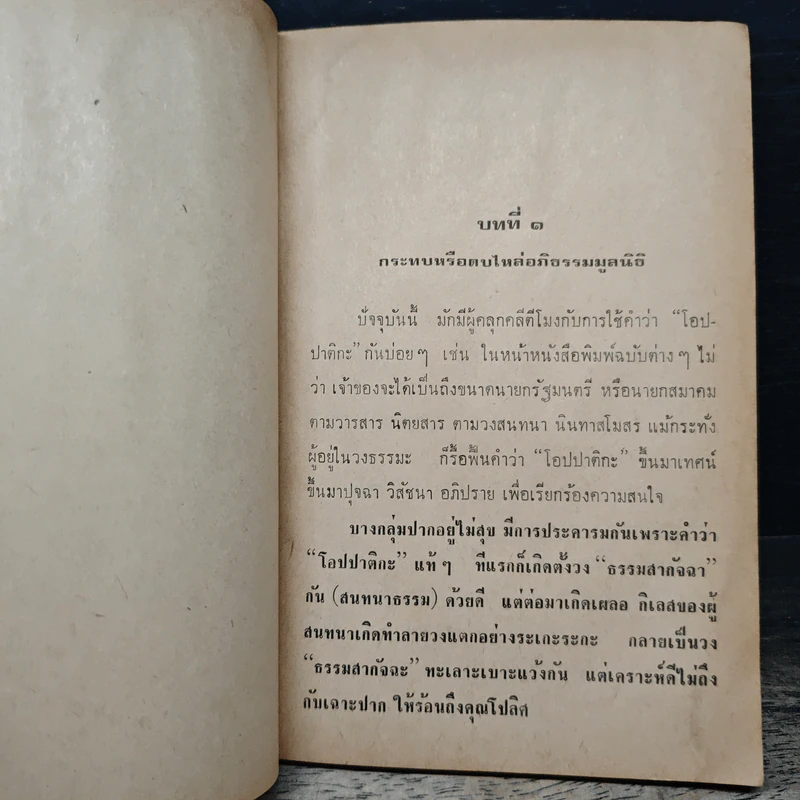 บทที่ ๑
กระทบหรือตบไหล่อภิธรรมมูลนิธิ
ปัจจุบันนี้ มักมีผู้คลุกคลีตีโมงกับการใช้คำว่า “โอป-
ปาติกะ” กันบ่อย ๆ เช่น ในหน้าหนังสือพิมพ์ฉบับต่าง ๆ ไม่
ว่า เจ้าของจะได้เป็นถึงขนาดนายกรัฐมนตรี หรือนายกสมาคม
ตามวารสาร นิตยสาร ตามวงสนทนา นินทาสโมสร แม้กระทั่ง
ผู้อยู่ในวงธรรมะ ก็รื้อฟื้นคำว่า “โอปปาติกะ” ขึ้นมาเทศน์
ขึ้นมาปุจฉา วิสัชนา อภิปราย เพื่อเรียกร้องความสนใจ
บางกลุ่มปากอยู่ไม่สุข มีการประคารมกันเพราะคำว่า
“โอปปาติกะ” แท้ ๆ ทีแรกก็เกิดตั้งวง “ธรรมสากัจฉา”
กัน (สนทนาธรรม) ด้วยดี แต่ต่อมาเกิดเผลอ กิเลสของผู้
สนทนาเกิดทำลายวงแตกอย่างระเกะระกะ กลายเป็นวง
“ธรรมสากัจฉะ” ทะเลาะเบาะแว้งกัน แต่เคราะห์ดีไม่ถึง
กับเฉาะปาก ให้ร้อนถึงคุณโปลิศ